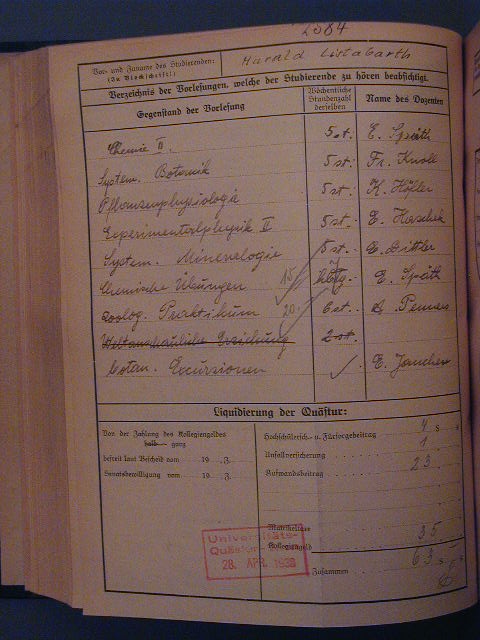 2584
Vor- und Zuname des Studierenden:
(In Blockschrift!)
Harald
Verzeichnis der Vorlesungen, welche der Studierende zu hören beabsichtigt.
Gegenstand der Vorlesung Wöchentliche Stundenzahl derselben Name des Dozenten
Chemie II. 5 st. E. Späth
System. Botanik 5 st. Fr. Knoll
Pflanzenphysiologie 5 st. K. Höfler
Experimentalphysik II 5 st. E. Haschek
System. Mineralogie 5 st. E. Dittler
Chemische Übungen 15 E. Späth
Zoolog. Praktikum 20 6 st.
Weltanschauliche Erziehung 2 st.
botan. Excursionen E. Janchen
Liquidierung der Quästur:
Von der Zahlung des Kollegiengeldes
halb ganz
befreit laut Bescheid vom 19 . Z.
Senatsbewilligung vom 19 . Z.
Hochschülersch.- u. Fürsorgebeitrag 4 S
Unfallversicherung 1
Aufwandsbeitrag 23
Matrikeltaxe
Kollegiengeld 35
Zusammen 63 S
Universitäts-
Quästur
28. APR. 1938